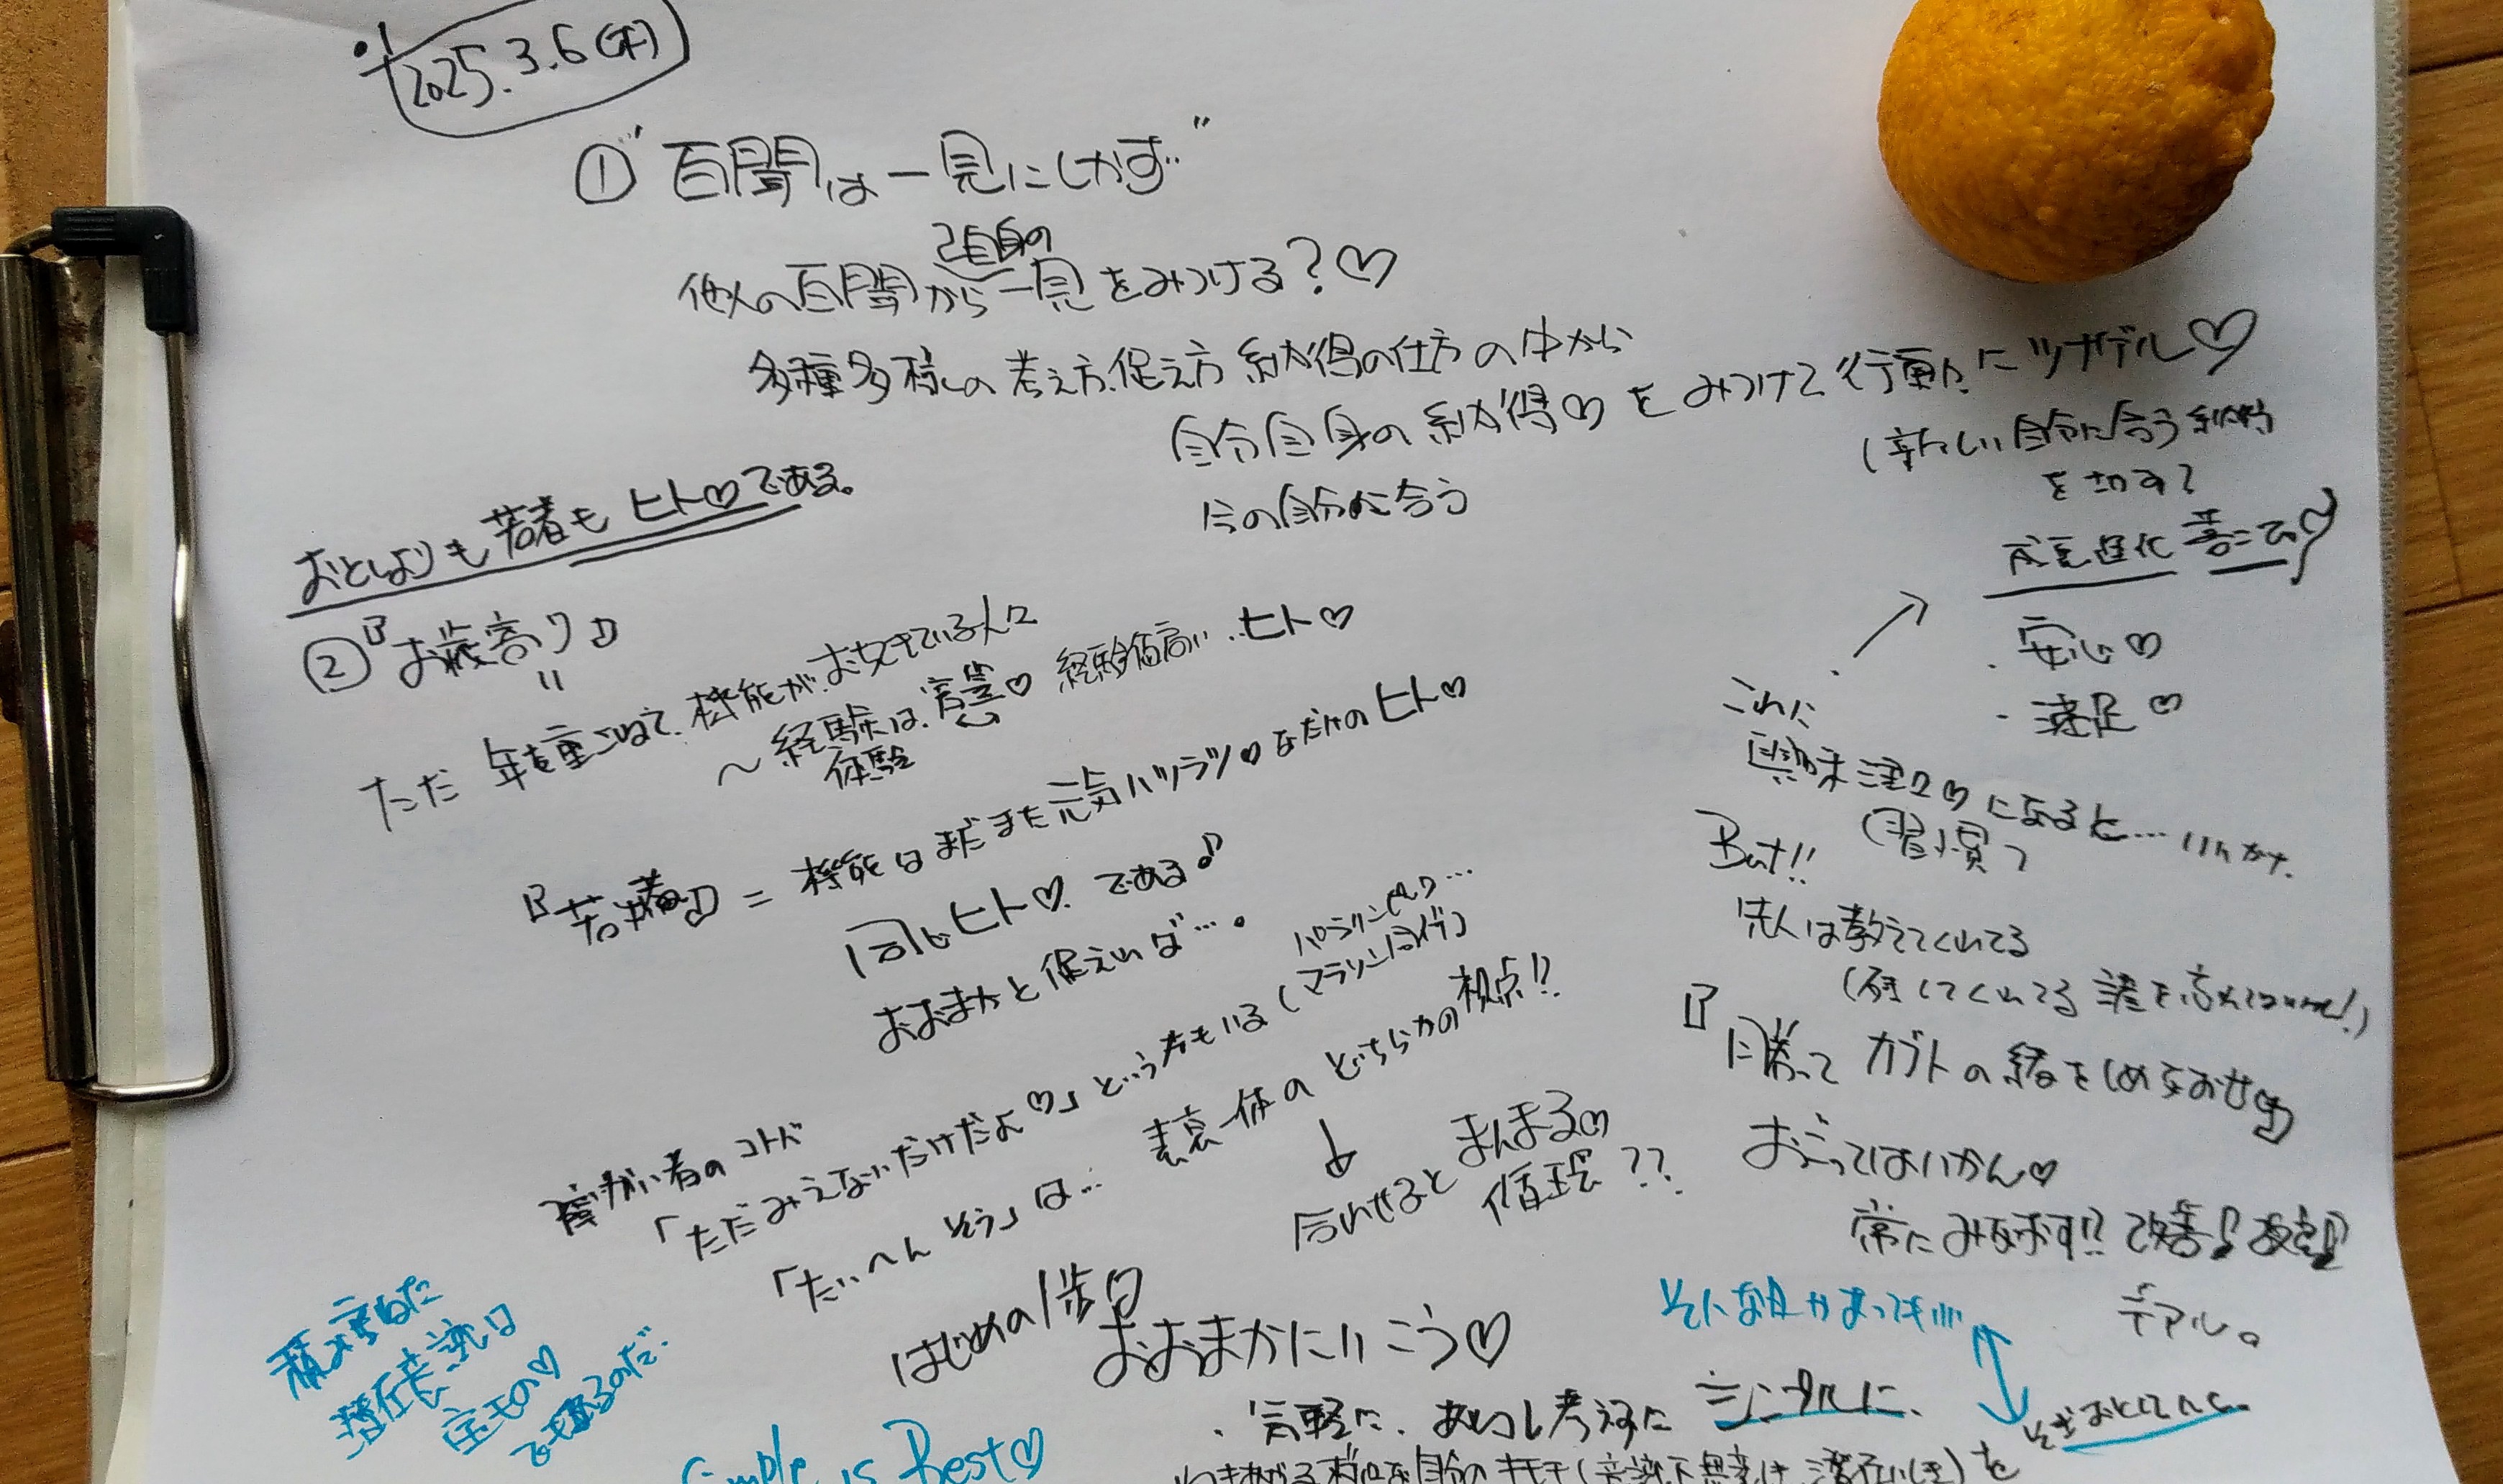 2025.3.6(木)
① "百聞は一見にしかず"
己自身の
他人の百聞から一見をみつける?♡
多種多様の考え方、促え方 納得の仕方の中から
自分自身の納得♡をみつけて行動にツナゲル♡
今の自分に合う
(新しい自分に合う納得
成長進化
・安心♡
・満足♡
おとしよりも若者もヒト♡である。
②『お歳寄り』
=
ただ 年を重ねて、機能が、お欠きている人に
〜経験は、豊富♡ 経験値高い、ヒト♡
体験
『若者』= 機能はまだまだ元気ハツラツ♡なだけのヒト♡
同じヒト♡である♪
おおまかと促えれば…。
これに
興味津々♡になると…
(習慣)
But!!
先人は教えてくれてる
(残してくれてる
『勝ってカブトの緒をしめなおせ』
おごってはいかん♡
常にみなおす!?で改善♪
デアル。
障がい者のコトバ
「ただみえないだけだよ♡」という方もいる(パラリンピック…
(マラソン同行)
「たいへんそう」は… 表裏一体のどちらかの視点!?
↓
合わせると まんまる♡
循環??
はじめの1歩
おおまかにいこう♡
・気軽に、あわし考えずに シンプルに、
積み重ねた
潜在意識は
宝もの♡
でもあるのだ。
Simple is Best♡
そんな日があっても